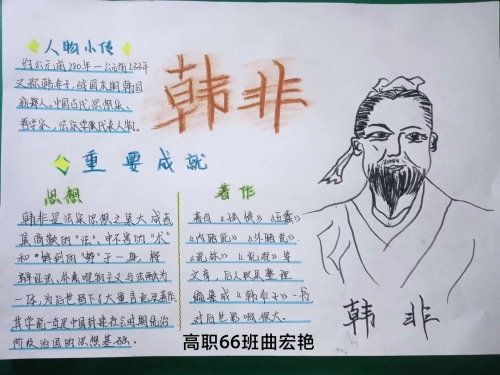 人物小传
约公元前280年—公元前233年
又称韩非子，战国末期韩国
新郑人，中国古代思想家、
哲学家，法家学派代表人物。
韩非
重要成就
思想
韩非是法家思想之集大成者
集商鞅的"法"、申不害的"术"
和"慎到的"势"于一身，将
辩证法、朴素唯物主义与法融为
一体，为后世留下了大量言论及著作
其学说一直是中国封建社会时期统治
阶级治国的思想基础。
著作
著有《孤愤》《五蠹》
《内储说》《外储说》
《说林》《说难》等
文章，后人收集整理
编纂成《韩非子》一书
对后世影响很大。
韩 非
高职66班曲宏艳